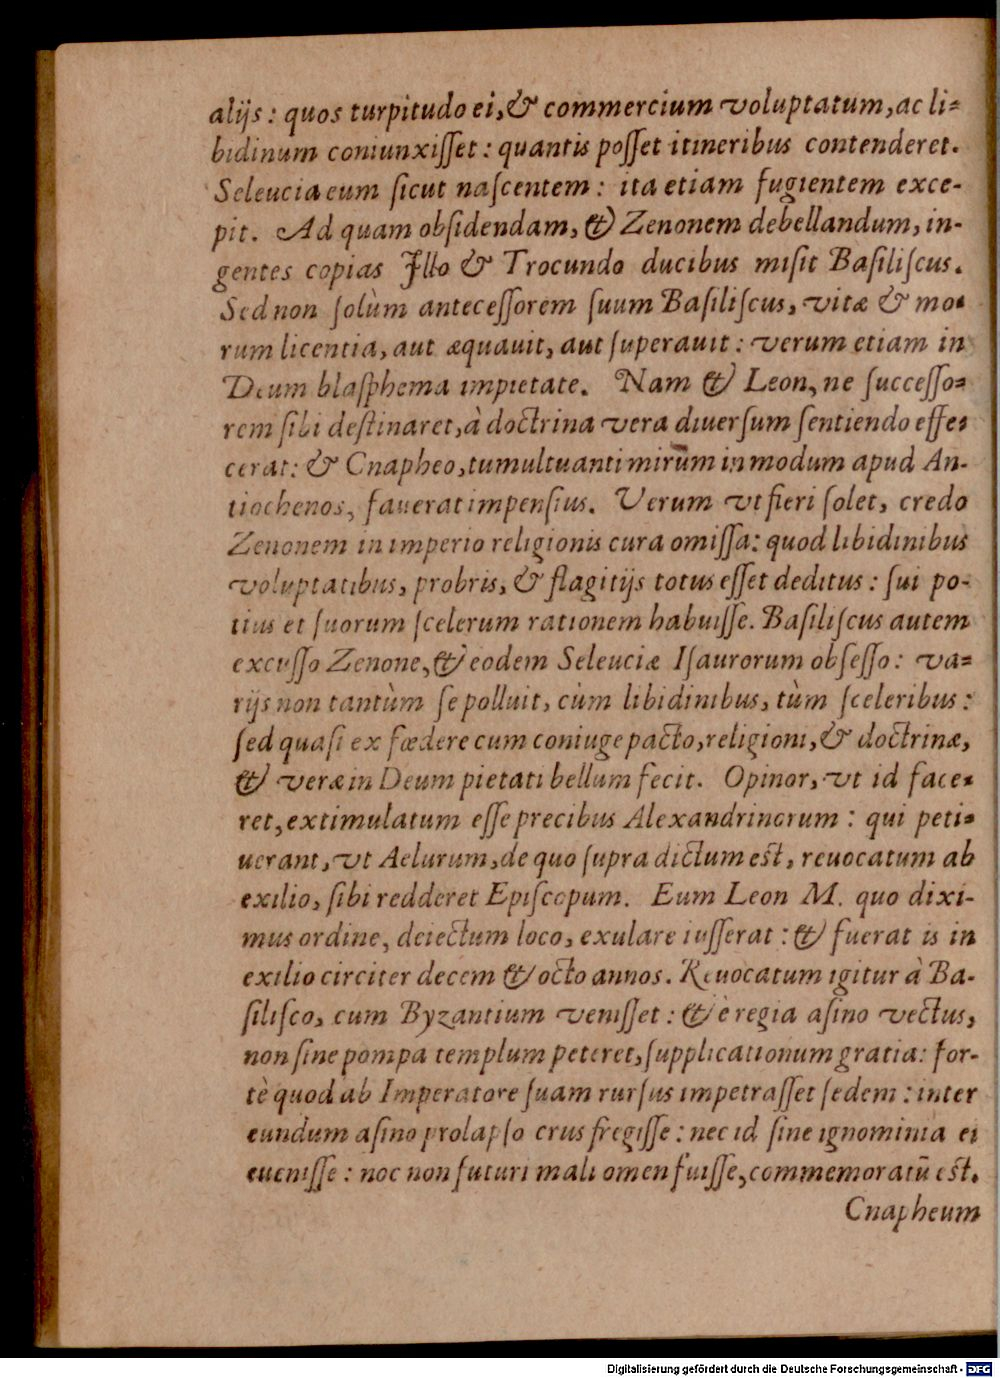 alijs: quos turpitudo ei, & commercium voluptatum, ac li-
bidinum coniunxiſſet: quantis poſſet itineribus contenderet.
Seleucia eum ſicut naſcentem: ita etiam fugientem exce-
pit. Ad quam obſidendam, & Zenonem debellandum, in-
gentes copias Illo & Trocundo ducibus miſit Baſiliſcus.
Sed non ſolùm anteceſſorem ſuum Baſiliſcus, vitæ & mo-
rum licentia, aut æquauit, aut ſuperauit: verum etiam in
Deum blaſphema impietate. Nam & Leon, ne ſucceſſo-
rem ſibi deſtinaret, à doctrina vera diuerſum ſentiendo effe-
cerat: & Cnapheo, tumultuanti mirũm in modum apud An-
tiochenos, fauerat impenſius. Verum vt fieri ſolet, credo
Zenonem in imperio religionis cura omiſſa: quod libidinibus
voluptatibus, probris, & flagitijs totus eſſet deditus: ſui po-
tius et ſuorum ſcelerum rationem habuiſſe. Baſiliſcus autem
excuſſo Zenone, & eodem Seleuciæ Iſaurorum obſeſſo: va-
rijs non tantùm ſe polluit, cùm libidinibus, tùm ſceleribus:
ſed quaſi ex fœdere cum coniuge pacto, religioni, & doctrinæ,
& veræ in Deum pietati bellum fecit. Opinor, vt id face-
ret, extimulatum eſſe precibus Alexandrinorum: qui peti-
uerant, vt Aelurum, de quo ſupra dictum eſt, reuocatum ab
exilio, ſibi redderet Epiſcopum. Eum Leon M. quo dixi-
mus ordine, deiectum loco, exulare iuſſerat: & fuerat is in
exilio circiter decem & octo annos. Reuocatum igitur à Ba-
ſiliſco, cum Byzantium veniſſet: & è regia aſino vectus,
non ſine pompa templum peteret, ſupplicationum gratia: for-
tè quod ab Imperatore ſuam rurſus impetraſſet ſedem: inter
eundum aſino prolapſo crus fregiſſe: nec id ſine ignominia ei
eueniſſe: noc non futuri mali omen fuiſſe, commemoratũ eſt.
Cnapheum
Digitalisierung gefördert durch die Deutsche Forschungsgemeinschaft - DFG